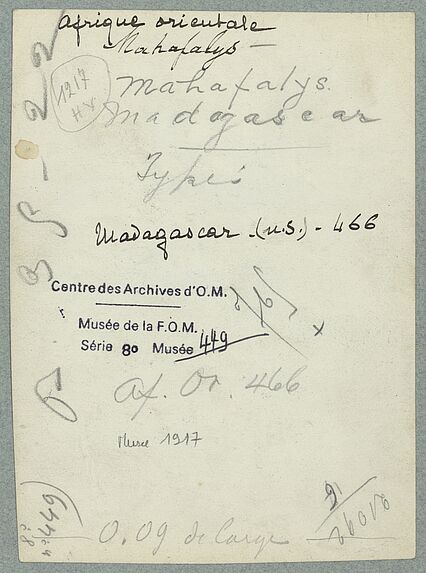 Afrique orientale
Mahafalys -
1217
Mahafalys.
Madagascar
Types
Madagascar - (n.s.) - 466
Centre des Archives d'O.M.
Musée de la F.O.M.
Série 80 Musée 449
x
Af. Or. 466
1917
0.09 de large